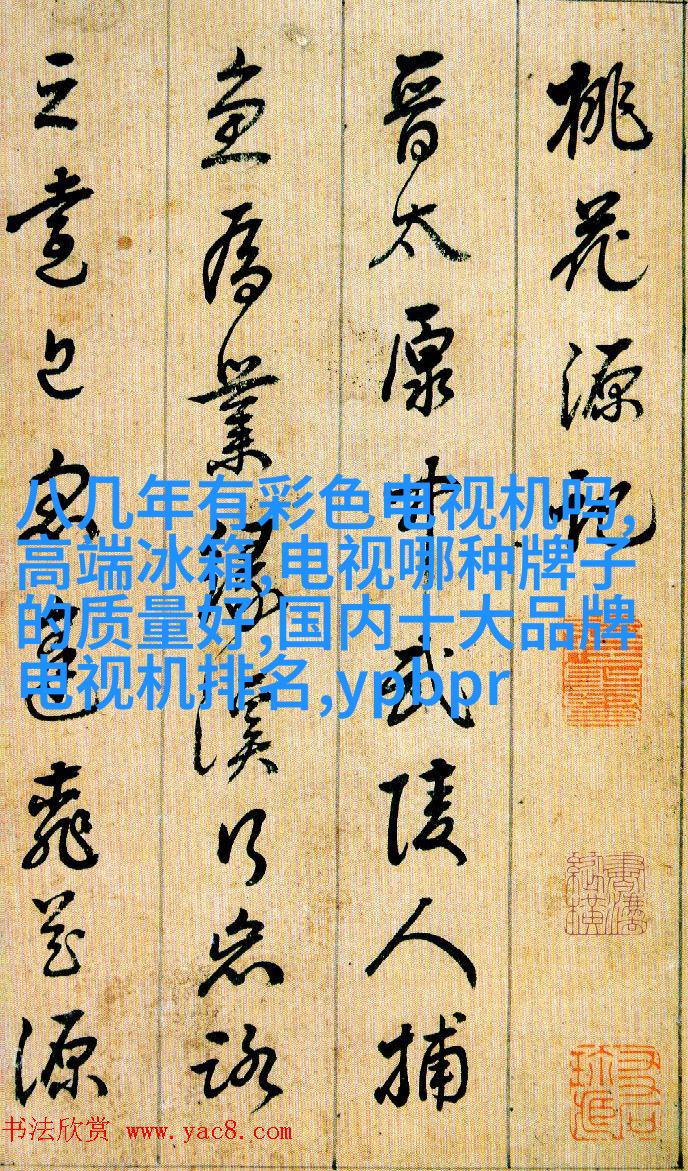 桃花源記
晋太原中武陵人捕
魚為業緣溪行忘路
之遠近忽逢桃花源
八几年有彩色电视机吗,
高端冰箱,电视哪种牌子
的质量好,国内十大品牌
电视机排名,ypbpr
书法欣赏 www.yac8.com